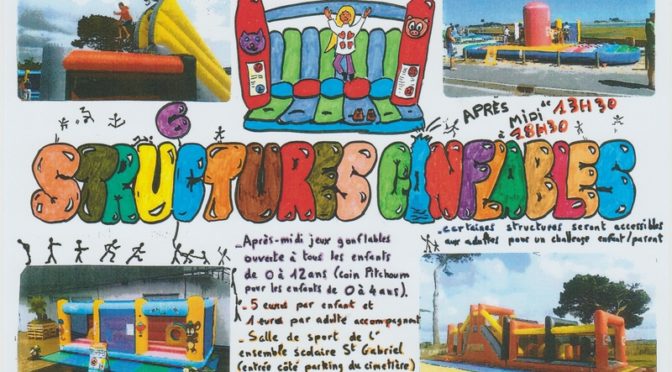 APRÈS
MIDI de 13H30
à 18H30
6
STRUCTURES GONFLABLES
_Après-midi jeux gonflables
ouverte à tous les enfants
de 0 à 12ans (coin Pitchoum
pour les enfants de 0 à 4ans).
_ 5 euros par enfant et
1 euros par adulte accompagnant
_ Salle de sport de l'
ensemble scolaire St Gabriel
(entrée côté parking du cimetière)
_certaines structures seront accessibles
aux adultes pour un challenge enfant/parent